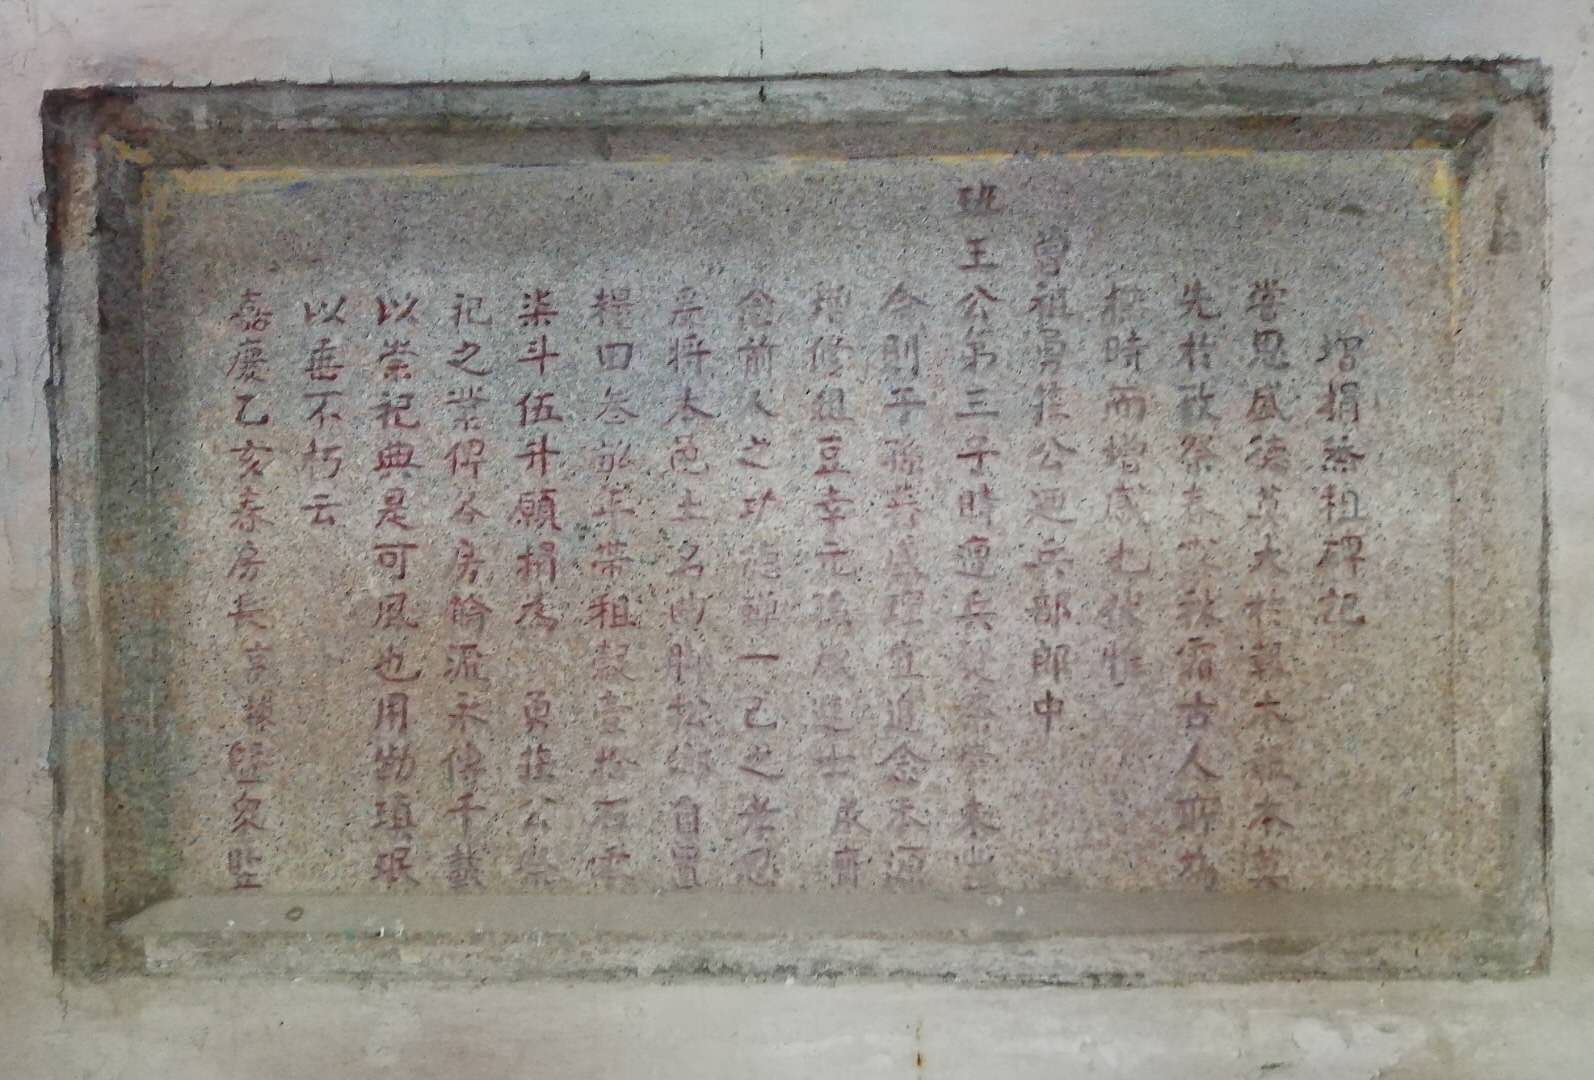 增捐烝租碑記
嘗思盛德莫大於報本報本莫
先於致祭春露秋霜古人所為
按時而增感也
曾祖勇菴公迺兵部郎中
班王公第三子時遭兵燹祭嘗未豐
今則子孫共感理宜追念本源
增修俎豆幸元孫歲進士永齋
念前人之功德殫一己之孝思
來將本邑土名 自置
糧田叁 年帶租穀壹拾石零
柒斗伍升願捐為 勇菴公祭
祀之業俾各房輪流永傳千載
以崇祀典是可風也用勒瑱珉
以垂不朽云
嘉慶乙亥春房長 眾竪